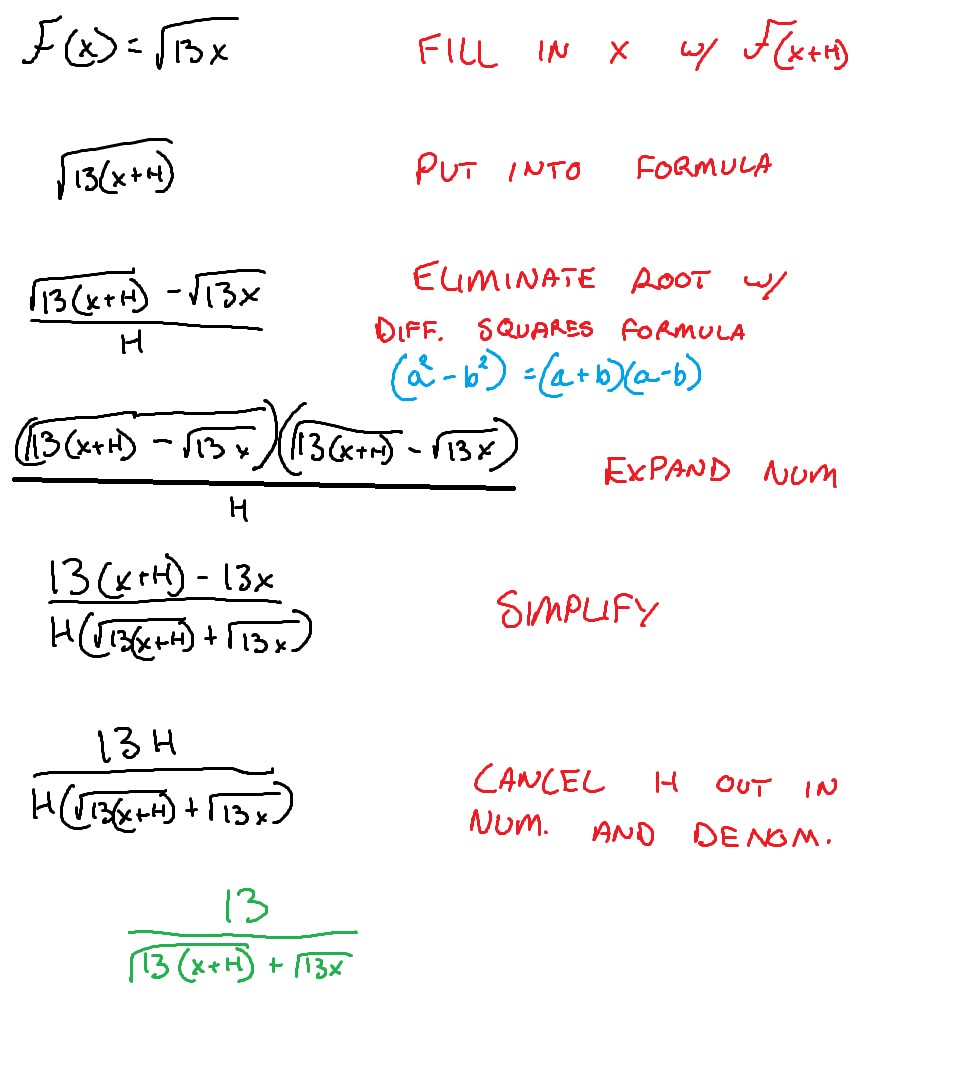 F(x) = √13x FILL IN X W/ F(x+H)
√13(x+H) PUT INTO FORMULA
√13(x+H) - √13x ELIMINATE ROOT W/
H DIFF. SQUARES FORMULA
(a² - b²) = (a+b)(a-b)
(√13(x+H) - √13x)(√13(x+H) - √13x) EXPAND NUM
H
13(x+H) - 13x
H(√13(x+H) + √13x) SIMPLIFY
13H
H(√13(x+H) + √13x) CANCEL H OUT IN
NUM. AND DENOM.
13
√13(x+H) + √13x